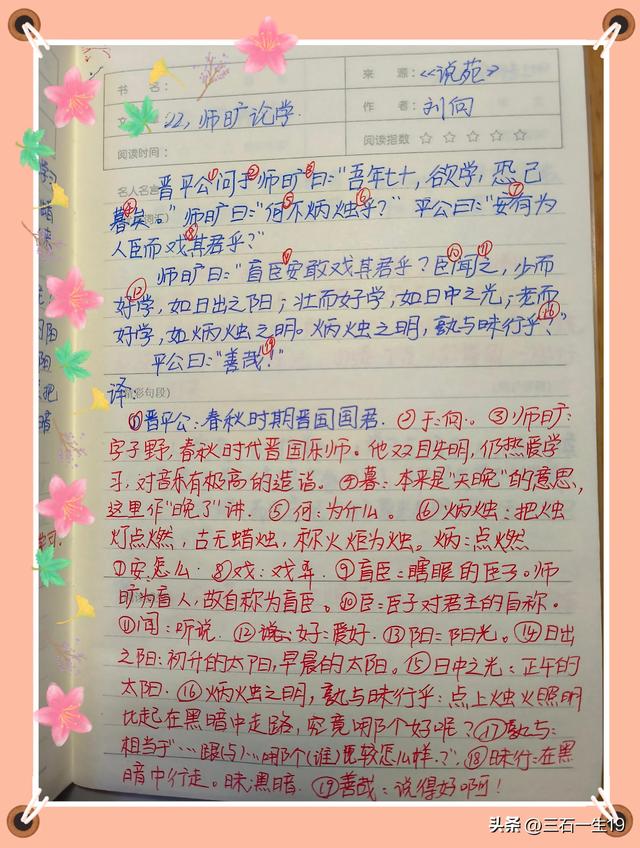 书 名：
来 源：《说苑》
22，师旷论学.
作 者：刘向
阅读时间：
阅读指数 ☆ ☆ ☆ ☆ ☆
名人名言
晋平公①问于②师旷③曰："吾年七十，欲学，恐已
暮④矣。"师旷曰："何⑤不炳烛⑥乎？"平公曰："安⑦有为
人臣而戏⑧其君乎？"
师旷曰："盲臣⑨安敢戏其君乎？臣⑩闻⑪之，少而
好⑫学，如日出之阳；壮而好学，如日中之光；老而
好学，如炳烛之明。炳烛之明，孰与昧行乎⑯？"
平公曰："善哉⑲！"
译：
彩句段）
①晋平公：春秋时期晋国国君. ②于：向. ③师旷：
字子野，春秋时代晋国乐师。他双目失明，仍热爱学
习，对音乐有极高的造诣。④暮：本来是"天晚"的意思，
这里作"晚了"讲. ⑤何：为什么。⑥炳烛：把烛
灯点燃，古无蜡烛，称火炬为烛。炳：点燃
⑦安：怎么. ⑧戏：戏弄. ⑨盲臣：瞎眼的臣子。师
旷为盲人，故自称为盲臣。⑩臣：臣子对君主的自称。
⑪闻：听说. ⑫好：爱好. ⑬阳：阳光。⑭日出
之阳：初升的太阳，早晨的太阳。⑮日中之光：正午的
太阳. ⑯炳烛之明，孰与昧行乎：点上烛火照明
比起在黑暗中走路，究竟哪个好呢？⑰孰与：
相当于"…跟(与)…哪个(谁)比较怎么样.？"⑱昧行：在黑
暗中行走。昧：黑暗. ⑲善哉：说得好啊！
头条 @三石一生19